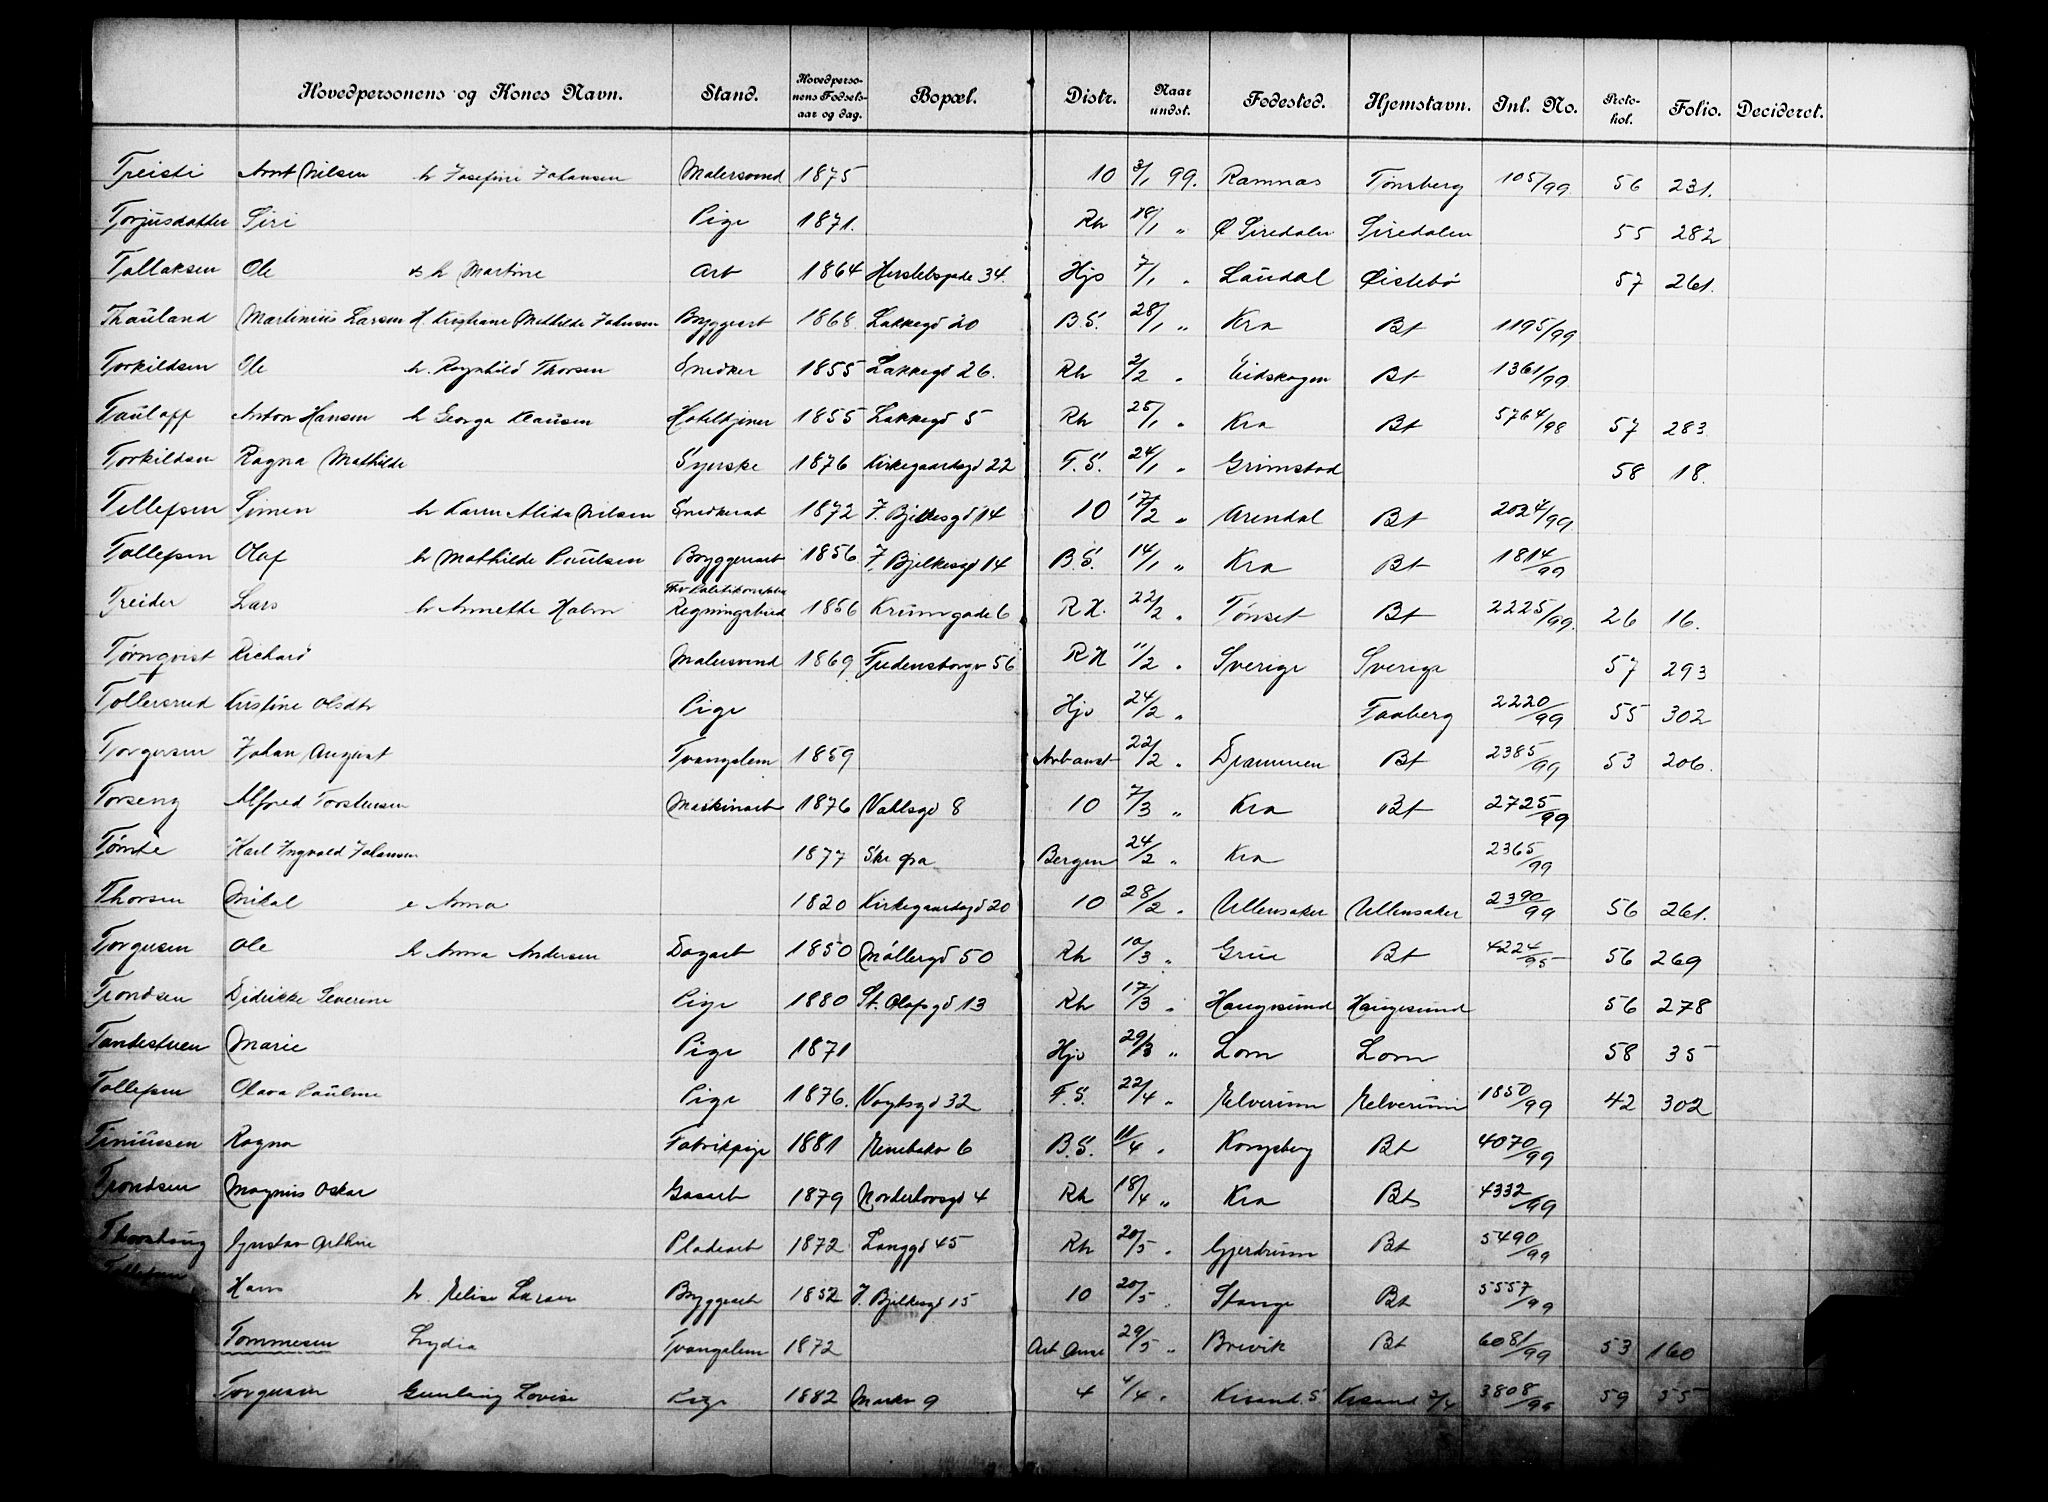 Hovedpersonens og Kones Navn. Stand. Hovedperso-nens Fødsels-aar og dag. Bopæl. Distr. Naar undst. Fødested. Hjemstavn. Inl. No. Proto-kol. Folio. Decideret.
Treisti Arnt Nilsen h Josefine Johansen Malersvend 1875 10 3/1 99. Ramnæs Tønsberg 105/99 56 231.
Torjusdatter Siri Pige 1871. Rh 18/1 " Ø Siredalen Siredalen 55 282
Tollaksen Ole h Martine Arb 1864 Herslebsgade 34. Hjo 7/1 " Laudal Øislebø 57 261.
Thauland Martinius Larsen H. Kristiane Mathilde Johnsen Byggearb 1868 Lakkegd 20 B.S. 28/1 " Kra Bt 1195/99
Torkildsen Ole h. Ragnhild Thorsen Snedker 1855 Lakkegd 26. Rh 2/2 " Eidskogen Bt 1361/99
Tauloff Anton Hansen h Georga Klausen Hotelltjener 1855 Lakkegd 5 Rh 25/1 " Kra Bt 5764/98 57 283
Torkildsen Ragna Mathilde Syerske 1876 Kirkegaardsgd 22 F.S. 24/1 " Grimstad 58 18.
Tellefsen Simen h Karen Alida Nilsen Snedkerarb 1872 J. Bjelkesgd 14 10 17/2 " Arendal Bt 2024/99
Tollefsen Olaf h Mathilde Paulsen Bryggeriarb 1856 J. Bjelkesgd 14 B.S. 14/1 " Kra Bt 1814/99
Treider Lars h Annethe Holm Regningsbud 1856 Krumgade 6 R.H. 22/2 " Tønset Bt 2225/99. 26 16.
Tørnqvist Richard Malersvend 1869 Fredensborgv 56 RH 11/2 " Sverige Sverige 57 293
Tollersrud Kristine Olsdtr Pige Hjo 24/2 " Faaberg 2220/99 55 302
Torgersen Johan August Tvangslem 1859 Arbanst 22/2 " Drammen Bt 2385/99 53 206.
Torseng Alfred Torstensen Maskinarb 1876 Vahlsgd 8 10 7/3 " Kra Bt 2725/99
Tømte Karl Ingvald Johansen 1877 Bergen 24/2 " Kra 2365/99
Thorsen Mikal e Anna 1820 Kirkegaardsgd 20 10 28/2 " Ullensaker Ullensaker 2390/99 56 261.
Torgersen Ole h Anna Andersen Dagarb 1850 Møllergd 50 Rh 10/3 " Grue Bt 4224/95 56 269
Trondsen Didrikke Severine Pige 1880 St. Olafsgd 13 Rh 17/3 " Haugesund Haugesund 56 278
Tandestuen Marie Pige 1871 Hjo 29/3 " Lom Lom 58 35
Tollefsen Olava Pauline Pige 1876. Vogtsgd 32 F.S. 22/4 " Elverum Elverum 1850/99 42 302
Tiniussen Ragna Fabrikpige 1881 Enebakv 6 B.S. 11/4 " Kongsberg Bt 4070/99
Trondsen Magnus Oskar Gasarb 1879 Norderhovsgd 4 Rh 18/4 " Kra Bt 4332/99
Thorshaug Gustav Arthur Pladearb 1872 Langgd 45 Rh 20/5 " Gjerdrum Bt 5490/99
Tollefsen Hans h. Elise Larsen Byggearb 1852 J. Bjelkesgd 15 10 20/5 " Stange Bt 5557/99
Tommesen Lydia Tvangslem 1872 Arb Anst 29/5 " Brevik Bt 6081/99 53 160
Torgersen Gunlaug Lovise Pige 1882 Markv 9 4 4/4 " Krsand. S Krsand 3808/99 59 55